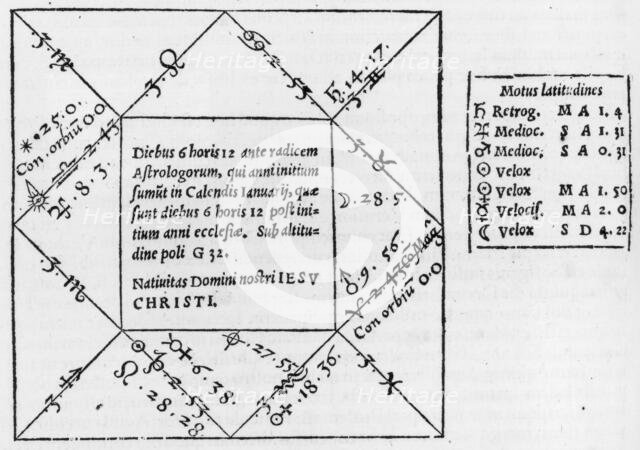 Diebus 6 horis 12 ante radicem
Astrologorum, qui anni initium
sumũt in Calendis Ianuarij, quæ
sunt diebus 6 horis 12 post ini-
tium anni ecclesiæ. Sub altitu-
dine poli G 32.
Nativitas Domini nostri IESV
CHRISTI.
3. ♏
3. ♌
♄. 14. 47.
3. ♊
✶ 25. 0.
Con. orbiũ 0 0
♎ 2. 43
♃ 8. 3.
3. ♉
☽. 28. 5.
♂ 9. 56.
♈ 2. 43 Co. Mag
Con orbiũ 0. 0
3. ♏
3. ♐
28. 28.
☿ 18. 36.
3. ♓
Motus Latitudines
♄ Retrog. M A 1. 4
♃ Medioc. S A 1. 31
♂ Medioc; S A 0. 31
☉ Velox
♀ Velox M A 1. 50
☿ Velocis. M A 2. 0
☾ Velox S D 4. 22
Heritage
Images